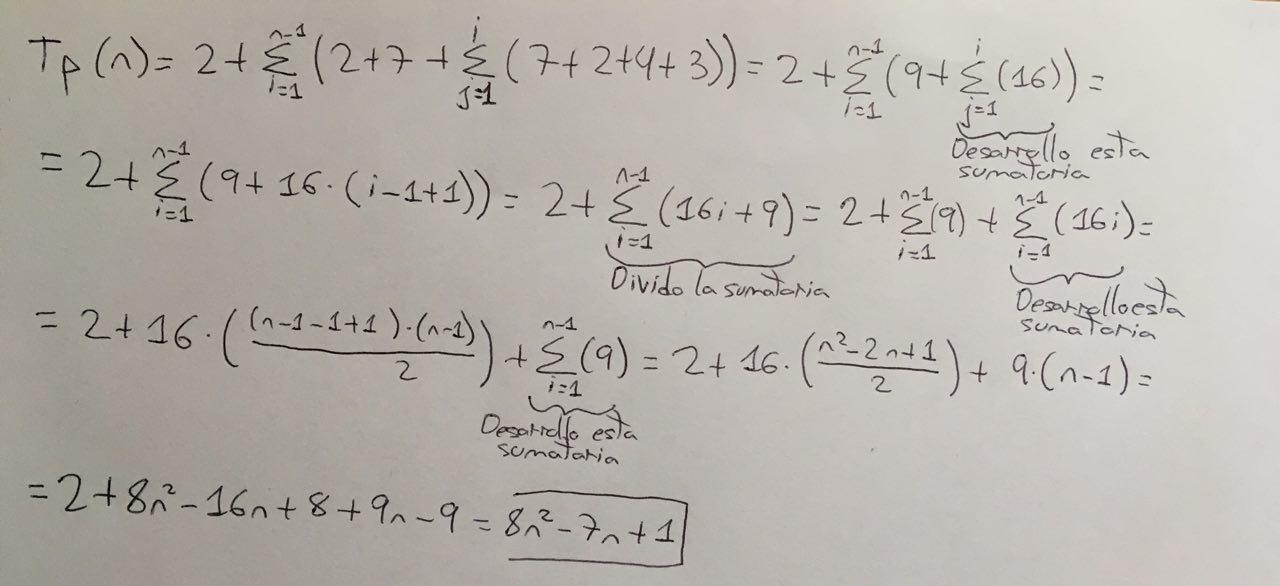 Tp(n) = 2 + ∑_{i=1}^{n-1} (2+7 + ∑_{j=1}^{i} (7+2+4+3)) = 2 + ∑_{i=1}^{n-1} (9 + ∑_{j=1}^{i} (16)) =
Desarrollo esta
sumatoria
= 2 + ∑_{i=1}^{n-1} (9 + 16·(i-1+1)) = 2 + ∑_{i=1}^{n-1} (16i+9) = 2 + ∑_{i=1}^{n-1} (9) + ∑_{i=1}^{n-1} (16i) =
Divido la sumatoria
Desarrollo esta
sumatoria
= 2 + 16·((n-1-1+1)·(n-1)/2) + ∑_{i=1}^{n-1} (9) = 2 + 16·((n²-2n+1)/2) + 9·(n-1) =
Desarrollo esta
sumatoria
= 2 + 8n² - 16n + 8 + 9n - 9 = 8n² - 7n + 1